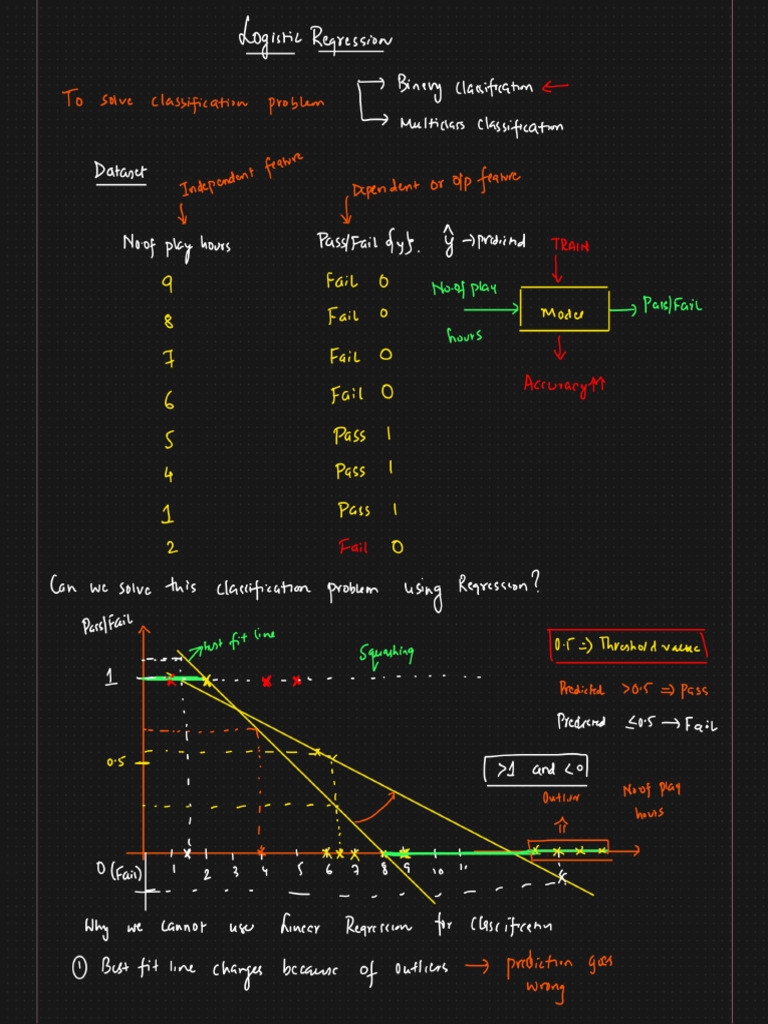 Logistic Regression
To solve classification problem
Binary Classification
Multiclass Classification
Dataset
Independent feature
Dependent or o/p feature
No of play hours
Pass/Fail {y}. ŷ → predicted
TRAIN
9 Fail 0
8 Fail 0
7 Fail 0
6 Fail 0
5 Pass 1
4 Pass 1
1 Pass 1
2 Fail 0
No of play
hours
Model
Pass/Fail
Accuracy ↑↑
Can we solve this classification problem using Regression?
Pass/Fail
best fit line
Squashing
0.5 ⇒ Threshold value
Predicted > 0.5 ⇒ Pass
Predicted ≤ 0.5 → Fail
1
0.5
>1 and <0
Outlier
No of play
hours
0 (Fail) 1 2 3 4 5 6 7 8 9 10 11
Why we cannot use Linear Regression for Classification
① Best fit line changes because of outliers → prediction goes
wrong